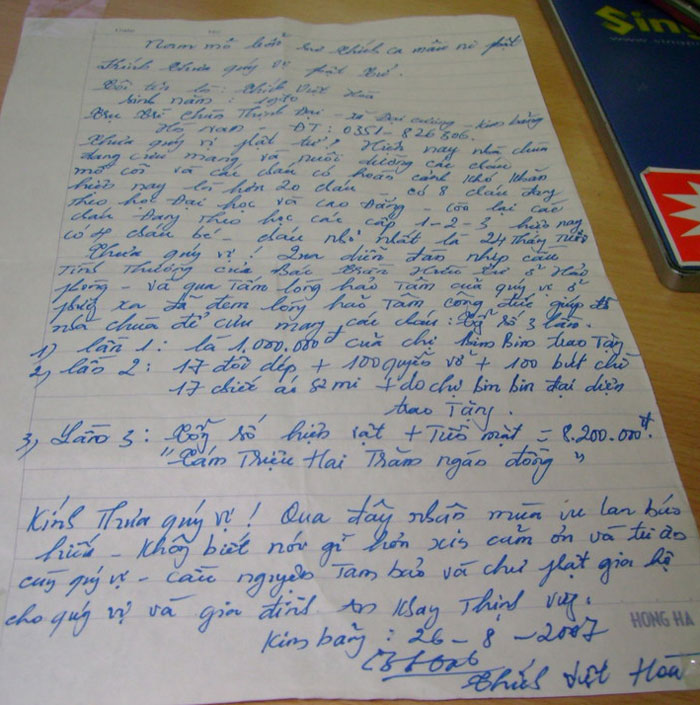 Nam mô bổn sư thích ca mâu ni phật
Kính thưa quý vị phật tử.
Tôi tên là: Thích Việt Hoà
sinh năm:
Trụ trì chùa Thịnh Đại - xã Đại cương - Kim bảng
Hà nam - ĐT: 0351-826806.
Thưa quý vị phật tử? Hiện nay nhà chùa
đang cưu mang và nuôi dưỡng các cháu
mồ côi và các cháu có hoàn cảnh khó khăn
hiện nay là hơn 20 cháu - có 8 cháu đang
theo học Đại học và cao Đẳng - còn lại các
cháu đang theo học các cấp 1-2-3 hiện nay
có 4 cháu bé - cháu nhỏ nhất là 24 tháng Tuổi
Thưa quý vị! Qua diễn đàn nhịp cầu
Tình Thương của Bác Trần Hữu ở Hải
phòng - và qua Tấm lòng hảo Tâm của quý vị ở
phương xa đã đem lòng hảo Tâm công đức giúp đỡ
nhà chùa để cưu mang các cháu: Tổng số 3 lần.
1) lần 1: là 1.000.000đ của chị Bim Bim trao Tặng
2) lần 2: 17 đôi dép + 100 quyển vở + 100 bút chì
17 chiếc áo sơ mi + do chị bin bin đại diện
trao Tặng.
3) Lần 3: Tổng số hiện vật + Tiền mặt = 8.200.000đ.
"Tám Triệu Hai Trăm ngàn đồng"
Kính Thưa quý vị! Qua đây nhân mùa vu lan báo
hiếu - Không biết nói gì hơn xin cảm ơn và tri ân
cùng quý vị - cầu nguyện Tam bảo và chư phật gia hộ
cho quý vị và gia đình An Khang Thịnh vượng.
HONG HA
Kim bảng: 26-8-2007
Thích Việt Hoà
Sins
www.